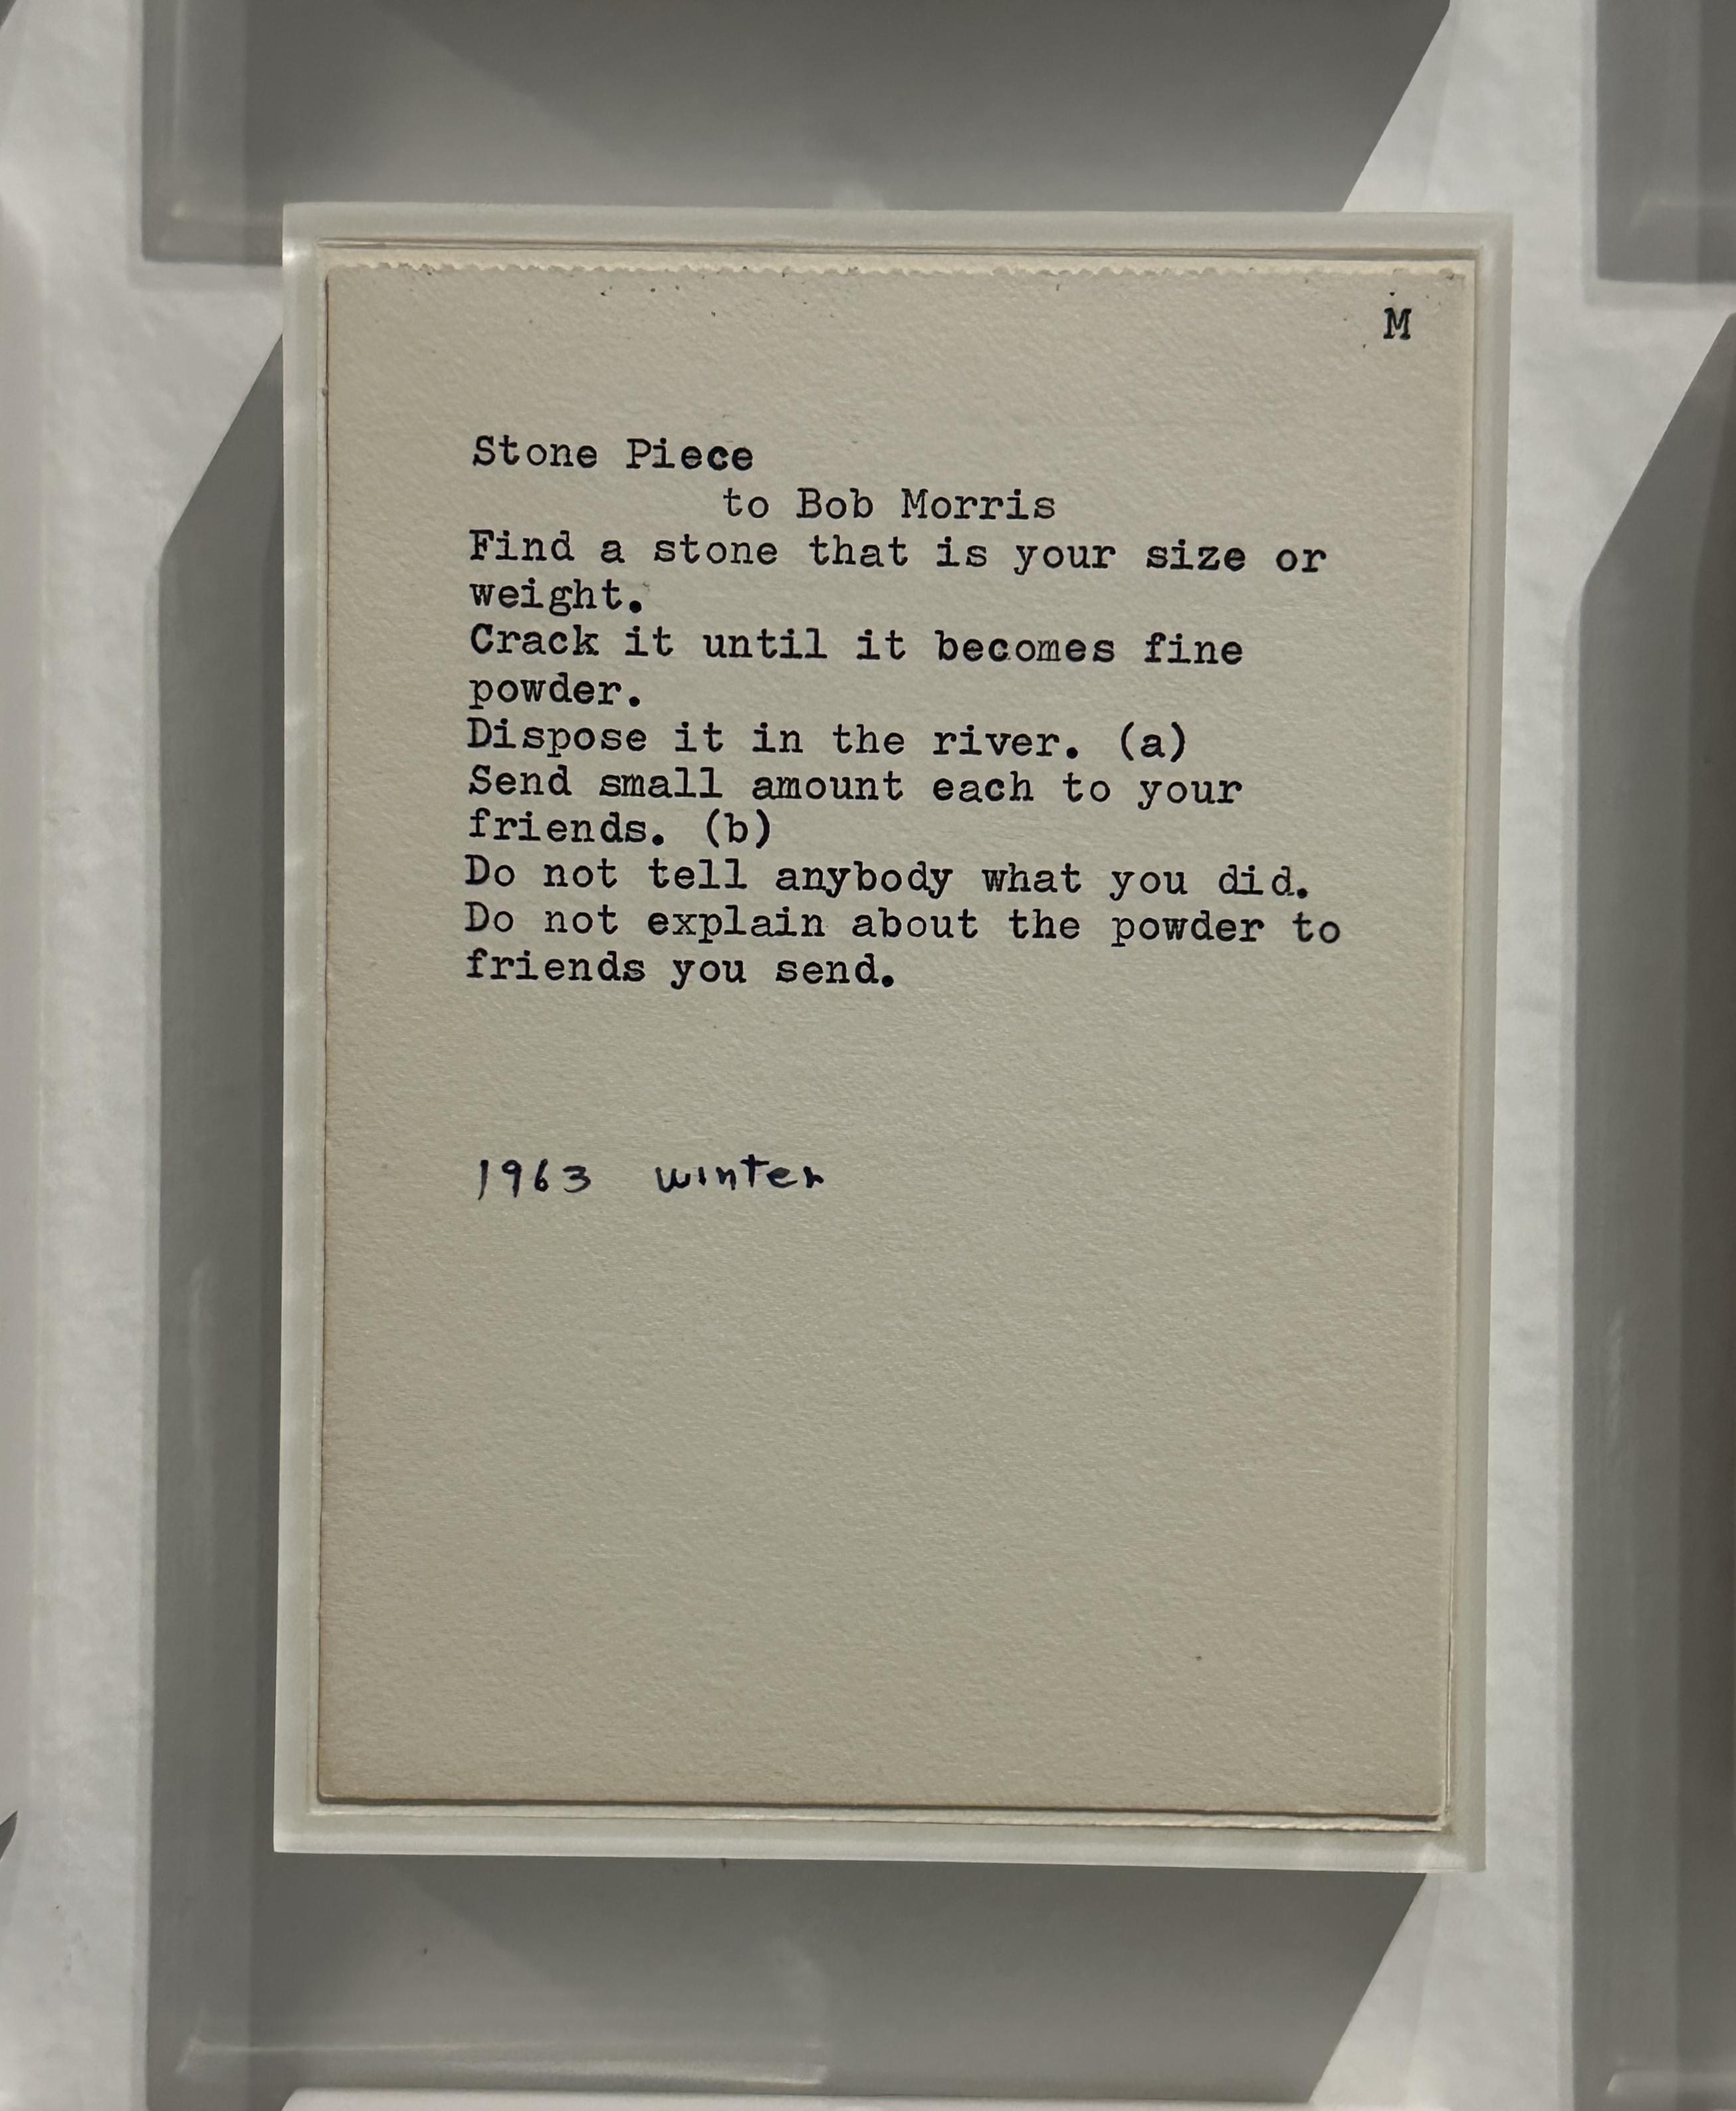 M
Stone Piece
to Bob Morris
Find a stone that is your size or
weight.
Crack it until it becomes fine
powder.
Dispose it in the river. (a)
Send small amount each to your
friends. (b)
Do not tell anybody what you did.
Do not explain about the powder to
friends you send.
1963 winter